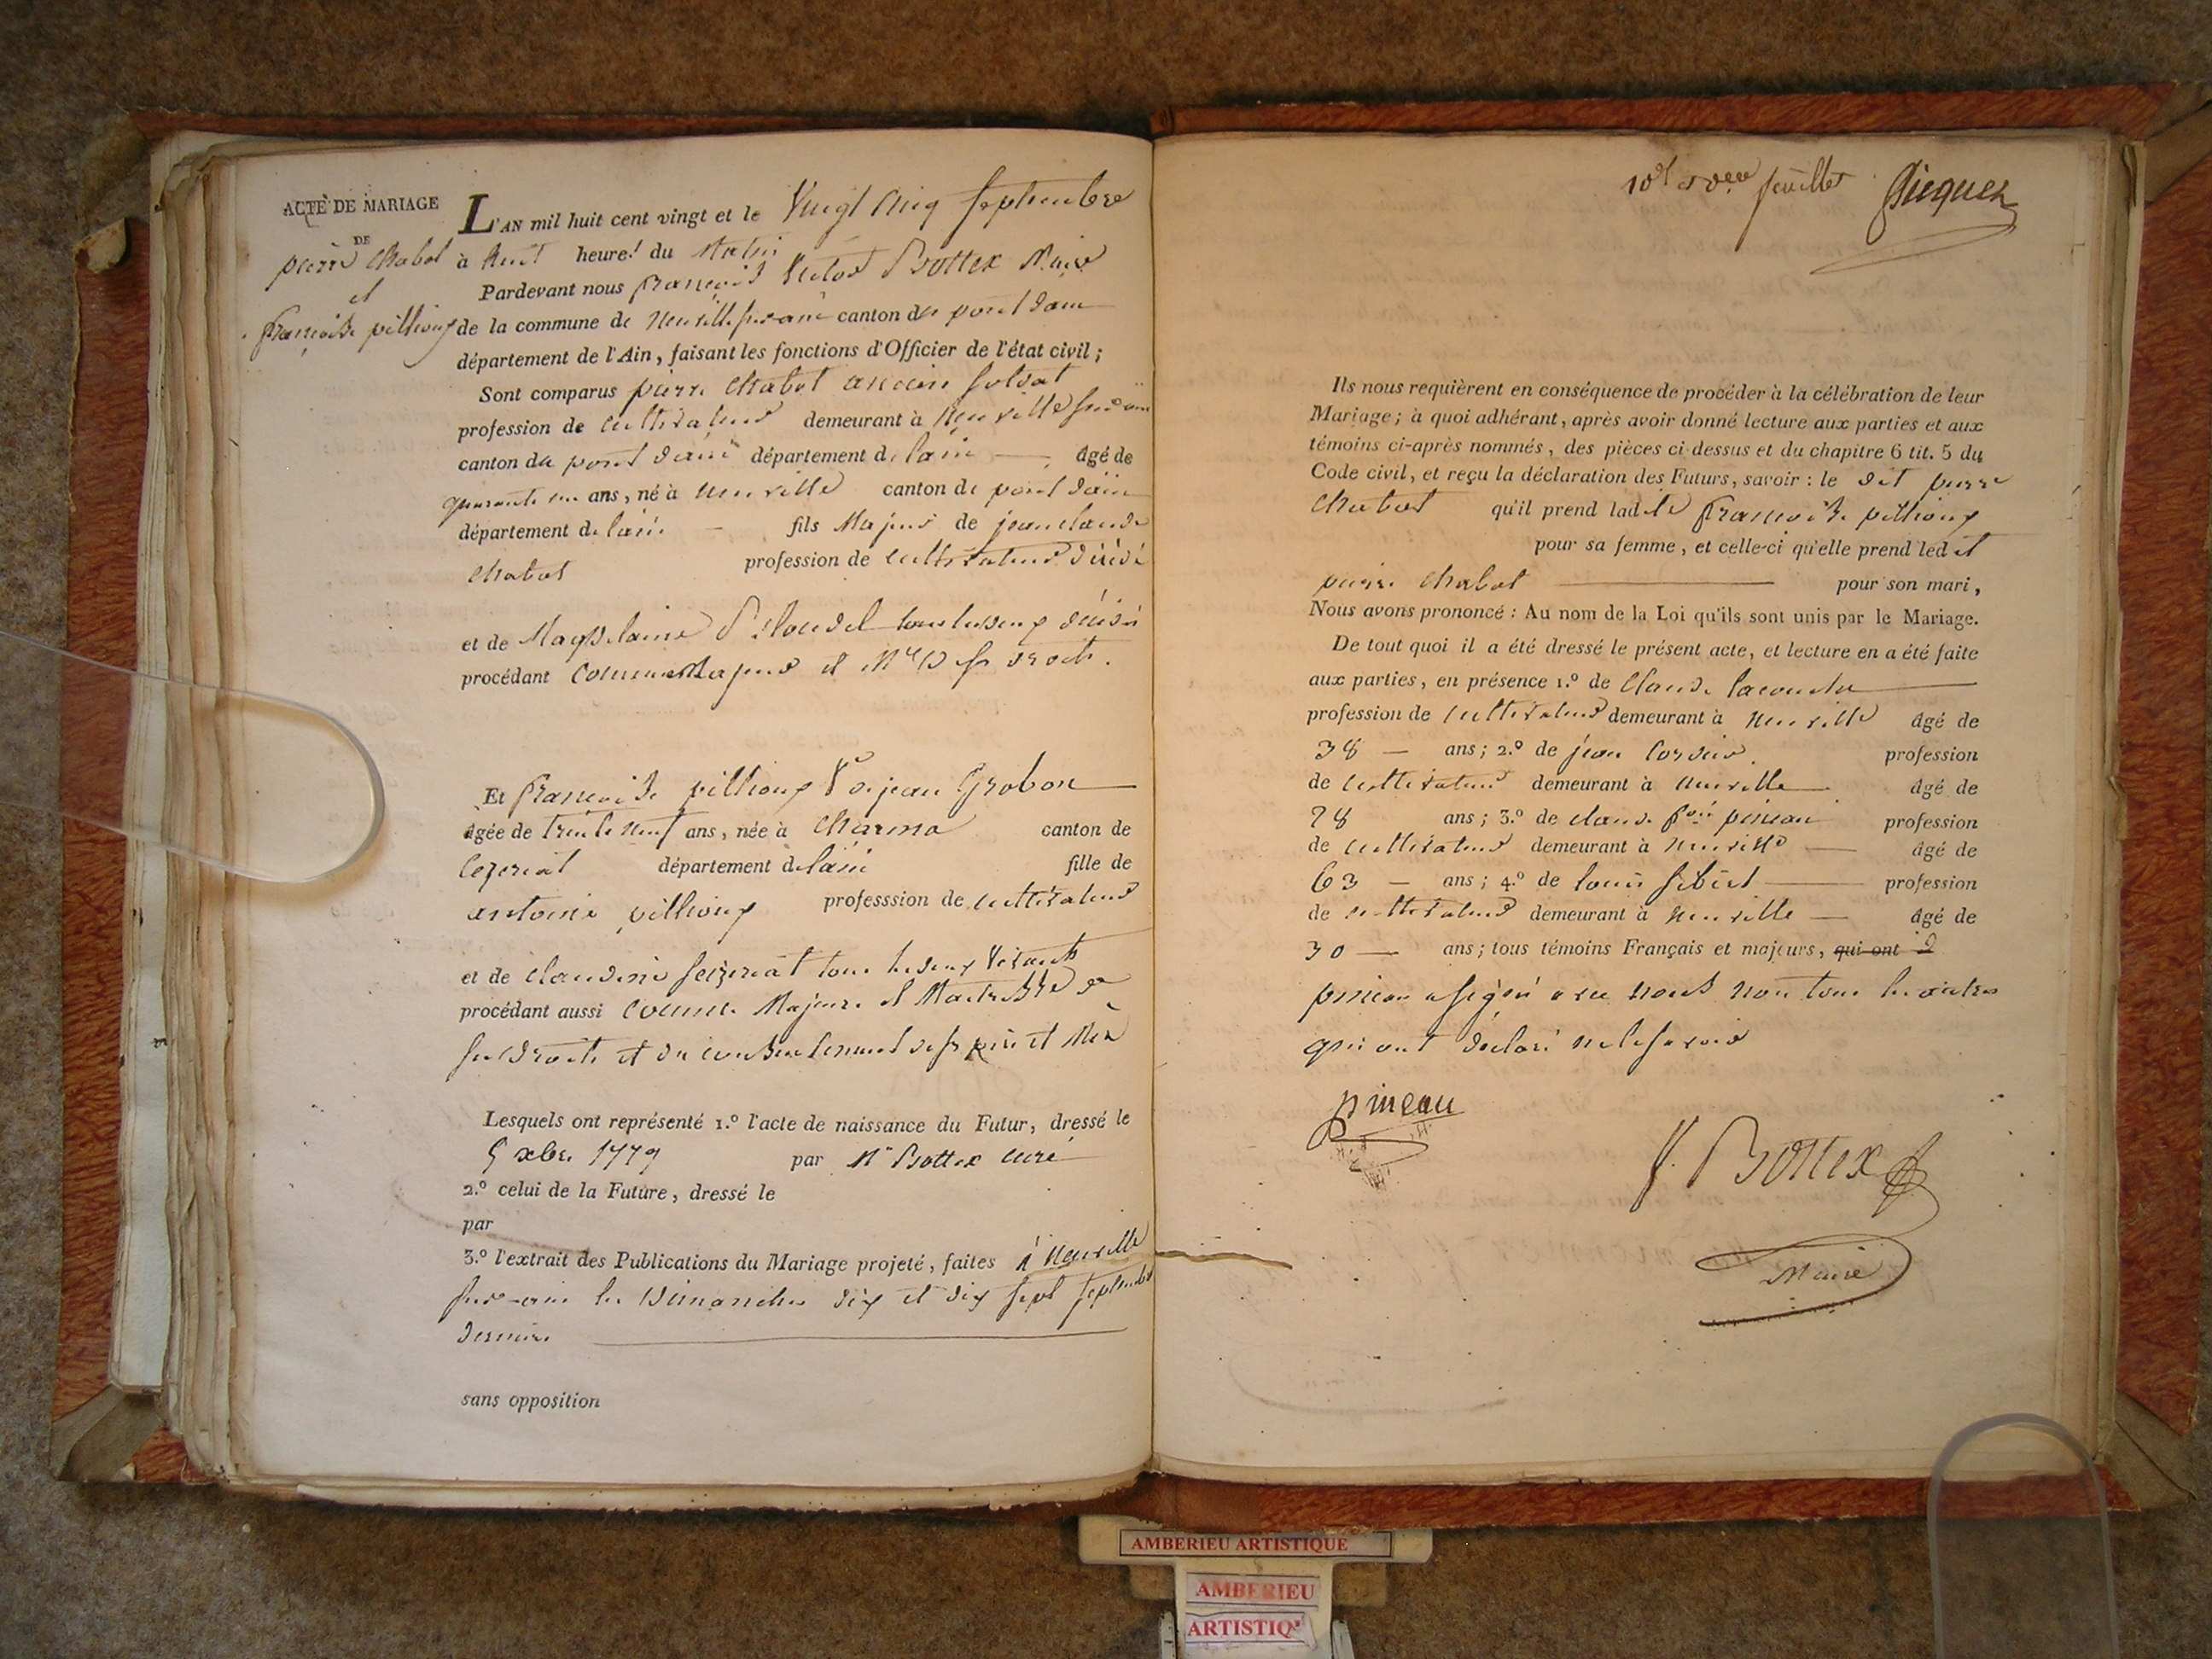 ACTE DE MARIAGE
DE
pierre Chabot
et
françoise pillioux
L'AN mil huit cent vingt et le Vingt cinq Septembre
à huit heures du Matin
Pardevant nous françois Victor Bottex Maire
de la commune de Neuville sur ain canton de pont dain
département de l'Ain, faisant les fonctions d'Officier de l'état civil;
Sont comparus pierre Chabot ancien soldat
profession de cultivateur demeurant à Neuville sur ain
canton du pont dain département de lain âgé de
quarante un ans, né à neuville canton de pont dain
département de lain fils Majeur de jean claude
Chabot profession de cultivateur décédé
et de Magdelaine tous les deux décédés
procédant comme Majeur et Me de ses droits.
Et françoise pillioux Ve de jean Grobon
âgée de trente neuf ans, née à Charma canton de
Cezeriat département de lain fille de
antoine pillioux professsion de cultivateur
et de claudine tous les deux Vivants
procédant aussi comme Majeure et Maitresse de
ses droits et du consentement de ses père et Mère
Lesquels ont représenté 1.º l'acte de naissance du Futur, dressé le
5 xbre 1779 par Mr Bottex curé
2.º celui de la Future, dressé le
par
3.º l'extrait des Publications du Mariage projeté, faites à Neuville
sur ain les Dimanches dix et dix sept septembre
dernier
sans opposition
feuillet
Ils nous requièrent en conséquence de procéder à la célébration de leur
Mariage; à quoi adhérant, après avoir donné lecture aux parties et aux
témoins ci-après nommés, des pièces ci dessus et du chapitre 6 tit. 5 du
Code civil, et reçu la déclaration des Futurs, savoir: le dit pierre
Chabot qu'il prend ladite françoise pillioux
pour sa femme, et celle-ci qu'elle prend ledit
pierre Chabot pour son mari,
Nous avons prononcé: Au nom de la Loi qu'ils sont unis par le Mariage.
De tout quoi il a été dressé le présent acte, et lecture en a été faite
aux parties, en présence 1.º de Claude
profession de cultivateur demeurant à neuville âgé de
38 ans; 2.º de jean Cordier profession
de cultivateur demeurant à neuville âgé de
28 ans; 3.º de claude pineau profession
de cultivateur demeurant à neuville âgé de
63 ans; 4.º de louis sibert profession
de cultivateur demeurant à neuville âgé de
30 ans; tous témoins Français et majeurs, qui ont
pineau a signé avec nous non tous les autres
qui ont déclaré ne le savoir
pineau
V. Bottex
Maire
AMBERIEU ARTISTIQUE
AMBERIEU
ARTISTIQ